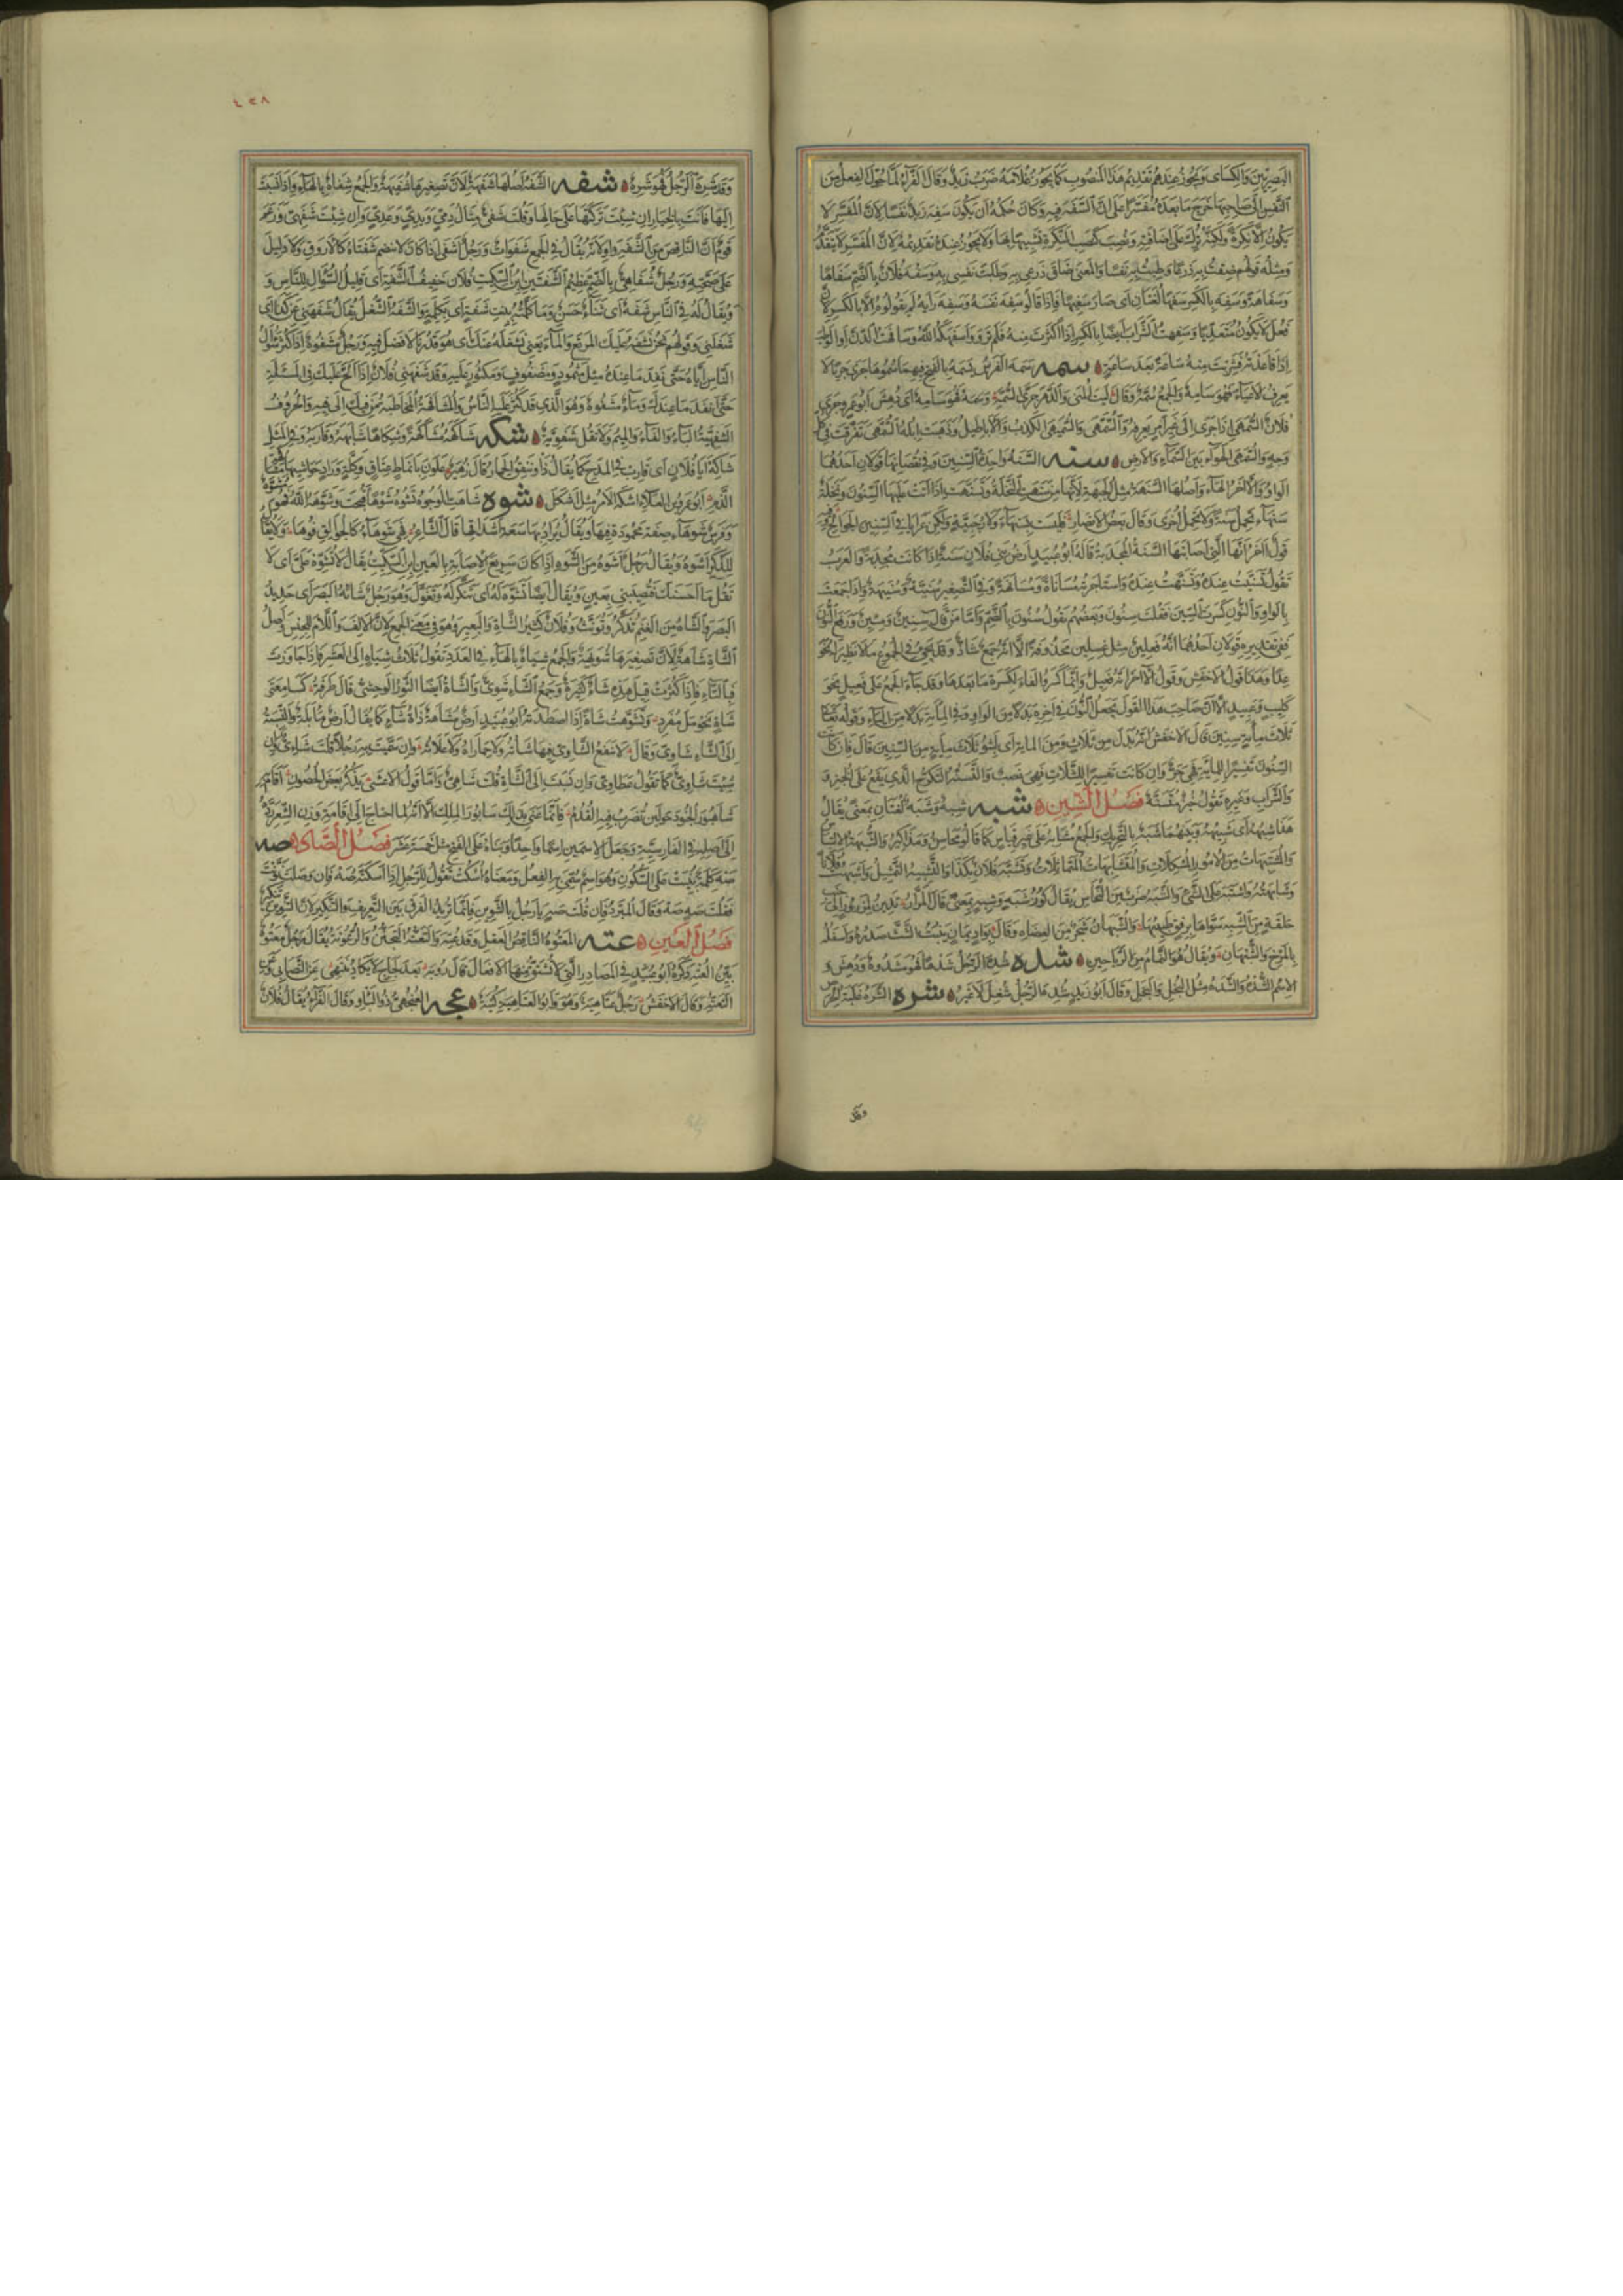 البصريين والكسائي ويجوز عندهم تقديم هذا المنصوب كما يجوز غلامه ضرب زيد وقال الفراء لما حول الفعل من
النفس إلى صاحبها خرج ما بعده مفسرا على أن السفه فيه وكان حكمه أن يكون سفه زيد نفسا لان المفسر لا
يكون الا نكرة ولكنه ترك على اضافته ونصب كنصب النكرة تشبيها بها ولا يجوز عنده تقديمه لان المفسر لا يتقدم
ومثله قولهم ضقت به ذرعا وطبت به نفسا والمعنى ضاق ذرعي به وطابت نفسي به وسفه فلان بالضم سفاها
وسفاهة وسفه بالكسر سفها لغتان اى صار سفيها فاذا قالوا سفه نفسه وسفه رايه لم يقولوه الا بالكسر لان
فعل لا يكون متعديا وسفهت الشراب ايضا بالكسر اذا اكثرت منه فلم ترو واسفهكه الله وسافهت الدن او الوطب
اذا قاعدته فشربت منه ساعة بعد ساعة سمه سمه الفرس يسمه بالفتح فيهما سموها جرى جريا لا
يعرف الاعياء فهو سامه والجمع سمه وقال ليت المنى والدهر جرى السمه وسمه فهو سامه اى دهش ابو عمرو جرى
فلان السمهى اذا جرى الى غير امر يعرفه والسمهى والسميهى الكذب والاباطيل وذهبت ابله السمهى تفرقت في كل
وجه والسمهى الهواء بين السماء والارض سنه السنة واحدة السنين وفي نقصانها قولان احدهما
الواو والاخر الهاء واصلها السنهة مثل الجبهة لانها من سنهت النخلة وتسنهت اذا اتت عليها السنون ونخلة
سنهاء تحمل سنة ولا تحمل اخرى وقال بعض الانصار فليست بسنهاء ولا رجبية ولكن عرايا في السنين الجوائح وفيه
قول اخر انها التي اصابتها السنة المجدبة قاله ابو عبيد ارض بني فلان سنة اذا كانت مجدبة والعرب
تقول تسنيت عنده وتسنهت عنده واستاجرته مساناة ومسانهة وفي التصغير سنية وسنيهة واذا جمعت
بالواو والنون كسرت السين فقلت سنون وبعضهم يقول سنون بالضم واما من قال سنين ومئين ورفع النون
ففي تقديره قولان احدهما انه فعلين مثل غسلين محذوفة الا انه جمع شاذ وقد يجيء في الجموع ما لا نظير له نحو
عدا وهذا قول الاخفش وقول الاخر انه فعيل وانما كسروا الفاء لكسرة ما بعدها وقد جاء الجمع على فعيل نحو
كليب وعبيد الا ان صاحب هذا القول يجعل النون في اخره بدلا من الواو وفي المأية بدلا من الياء وقوله تعالى
ثلاث مأية سنين قال الاخفش انه بدل من ثلاث ومن الماية اى لبثوا ثلاث ماية من السنين قال فان كانت
السنون تفسيرا للماية فهي جر وان كانت تفسيرا للثلاث فهي نصب والتسنه التكرج الذي يقع على الخبز و
والشراب وغيره تقول خبز متسنه فصل الشين شبه شبه وشبه لغتان بمعنى يقال
هذا شبهه اى شبيهه وبينهما شبه بالتحريك والجمع مشابه على غير قياس كما قالوا محاسن ومذاكير والشبهة الالتباس
والمشتبهات من الامور المشكلات والمتشابهات المتماثلات وتشبه فلان بكذا والتشبيه التمثيل واشبهت فلانا
وشابهته واشتبه على الشيء والشبه ضرب من النحاس يقال كوز شبه وشبه بمعنى قال المرار تدين لمزرور الى جنب
حلقة من الشبه سواها برفق طبيبها والشبهان شجر من العضاه وقال بواد يمان ينبت الشث صدره واسفله
بالمرخ والشبهان ويقال هو الثمام من الرياحين شده شده الرجل شدها فهو مشدوه ودهش و
الاسم الشده والشده مثل البخل والبخل وقال ابو زيد شده الرجل شغل لا غير شره الشره غلبة الحرص
وقد
٤٢٨
وقد شره الرجل فهو شره شفه الشفة اصلها شفهة لان تصغيرها شفيهة والجمع شفاه بالهاء واذا نسبت
اليها فانت بالخيار ان شئت تركتها على حالها وقلت شفي مثال دمي ويدي وعدي وان شئت شفهي وزعم
قوم ان الناقص من الشفة واو لانه يقال في الجمع شفوات ورجل اشفى اذا كان لا تنضم شفتاه كالاروق ولا دليل
على صحته ورجل شفاهي بالضم عظيم الشفتين ابن السكيت فلان خفيف الشفة اى قليل السؤال للناس و
ويقال له في الناس شفة اى ثناء حسن وما كلمته ببنت شفة اى بكلمة والشفه الشغل يقال شفهني عن كذا اى
شغلني وقولهم نحن نشفه عليك المرتع والماء يعني نشغله عنك اى هو قدرنا لا فضل فيه ورجل مشفوه اذا كثر سؤال
الناس اياه حتى نفد ما عنده مثل مثمود ومضفوف ومكثور عليه وقد شفهني فلان اذا الح عليك في المسئلة
حتى انفد ما عندك وماء مشفوه وهو الذي قد كثر عليه الناس والمشافهة المخاطبة من فيك الى فيه والحروف
الشفهية الباء والفاء والميم ولا تقل شفوية شكه شاكهه مشاكهة وشكاها شابهه وقاربه وفي المثل
شاكه ابا فلان اى قارب في المدح كما يقال بدون ذا ينفق الحمار قال زهير علون بانماط عتاق وكلة وراد حواشيها مشاكهة
الدم ابو عمرو بن العلاء اشكه الامر مثل اشكل شوه شاهت الوجوه تشوه شوها قبحت وشوهه الله فهو مشوه
وفرس شوهاء صفة محمودة فيها ويقال يراد بها سعة اشداقها قال الشاعر فهي شوهاء كالجوالق فوها ولا يقال
للذكر اشوه ويقال رجل اشوه من الشوه اذا كان سريع الاصابة بالعين ابن السكيت يقال لا تشوه علي اى لا
تقل ما احسنك فتصيبني بعين ويقال ايضا تشوه له اى تنكر له وتغول وهو رجل شائه البصر اى حديد
البصر والشاة من الغنم تذكر وتؤنث وفلان كثير الشاة والبعير وهو في معنى الجمع لان الالف واللام للجنس واصل
الشاة شاهة لان تصغيرها شويهة والجمع شياه بالهاء في العدد تقول ثلاث شياه الى العشر فاذا جاوزت
فبالتاء فاذا كثرت قيل هذه شاء كثيرة وجمع الشاء شوي والشاة ايضا الثور الوحشي قال طرفة كسامعتي
شاة بحومل مفرد وتشوهت شاة اذا اصطدته ابو عبيد ارض مشاهة ذات شاء كما يقال ارض مابلة والنسبة
الى الشاء شاوي وقال لا ينفع الشاوي فيها شاته ولا حماراه ولا علاته وان سميت به رجلا قلت شائي وان
شئت شاوي كما تقول عطاوي وان نسبت الى الشاة قلت شاهي واما قول الاعشى يذكر بعض الحصون اقام به
شاهبور الجنود حولين تضرب فيه القدم فانما عني بذلك سابور الملك الا انه لما احتاج الى اقامة وزن الشعر رده
الى اصله في الفارسية وجعل الاسمين اسما واحدا وبناه على الفتح مثل خمسة عشر فصل الصاد صه
صه كلمة بنيت على السكون وهو اسم سمي به الفعل ومعناه اسكت تقول للرجل اذا اسكته صه فان وصلت نونت
فقلت صه صه وقال المبرد فان قلت صه يا رجل بالتنوين فانما تريد الفرق بين التعريف والتنكير لان التنوين تنكير
فصل العين عته المعتوه الناقص العقل وقد عته والتعته التجنن والرعونة يقال رجل معتوه
بين العته ذكره ابو عبيد في المصادر التي لا تشتق منها الافعال قال رؤبة بعد لجاج لا يكاد ينتهي عن التصابي وعن
التعته وقال الاخفش رجل عتاهية وهو وابو العتاهية كنية عجه العنجهي ذو البأو وقال الفراء يقال فلان